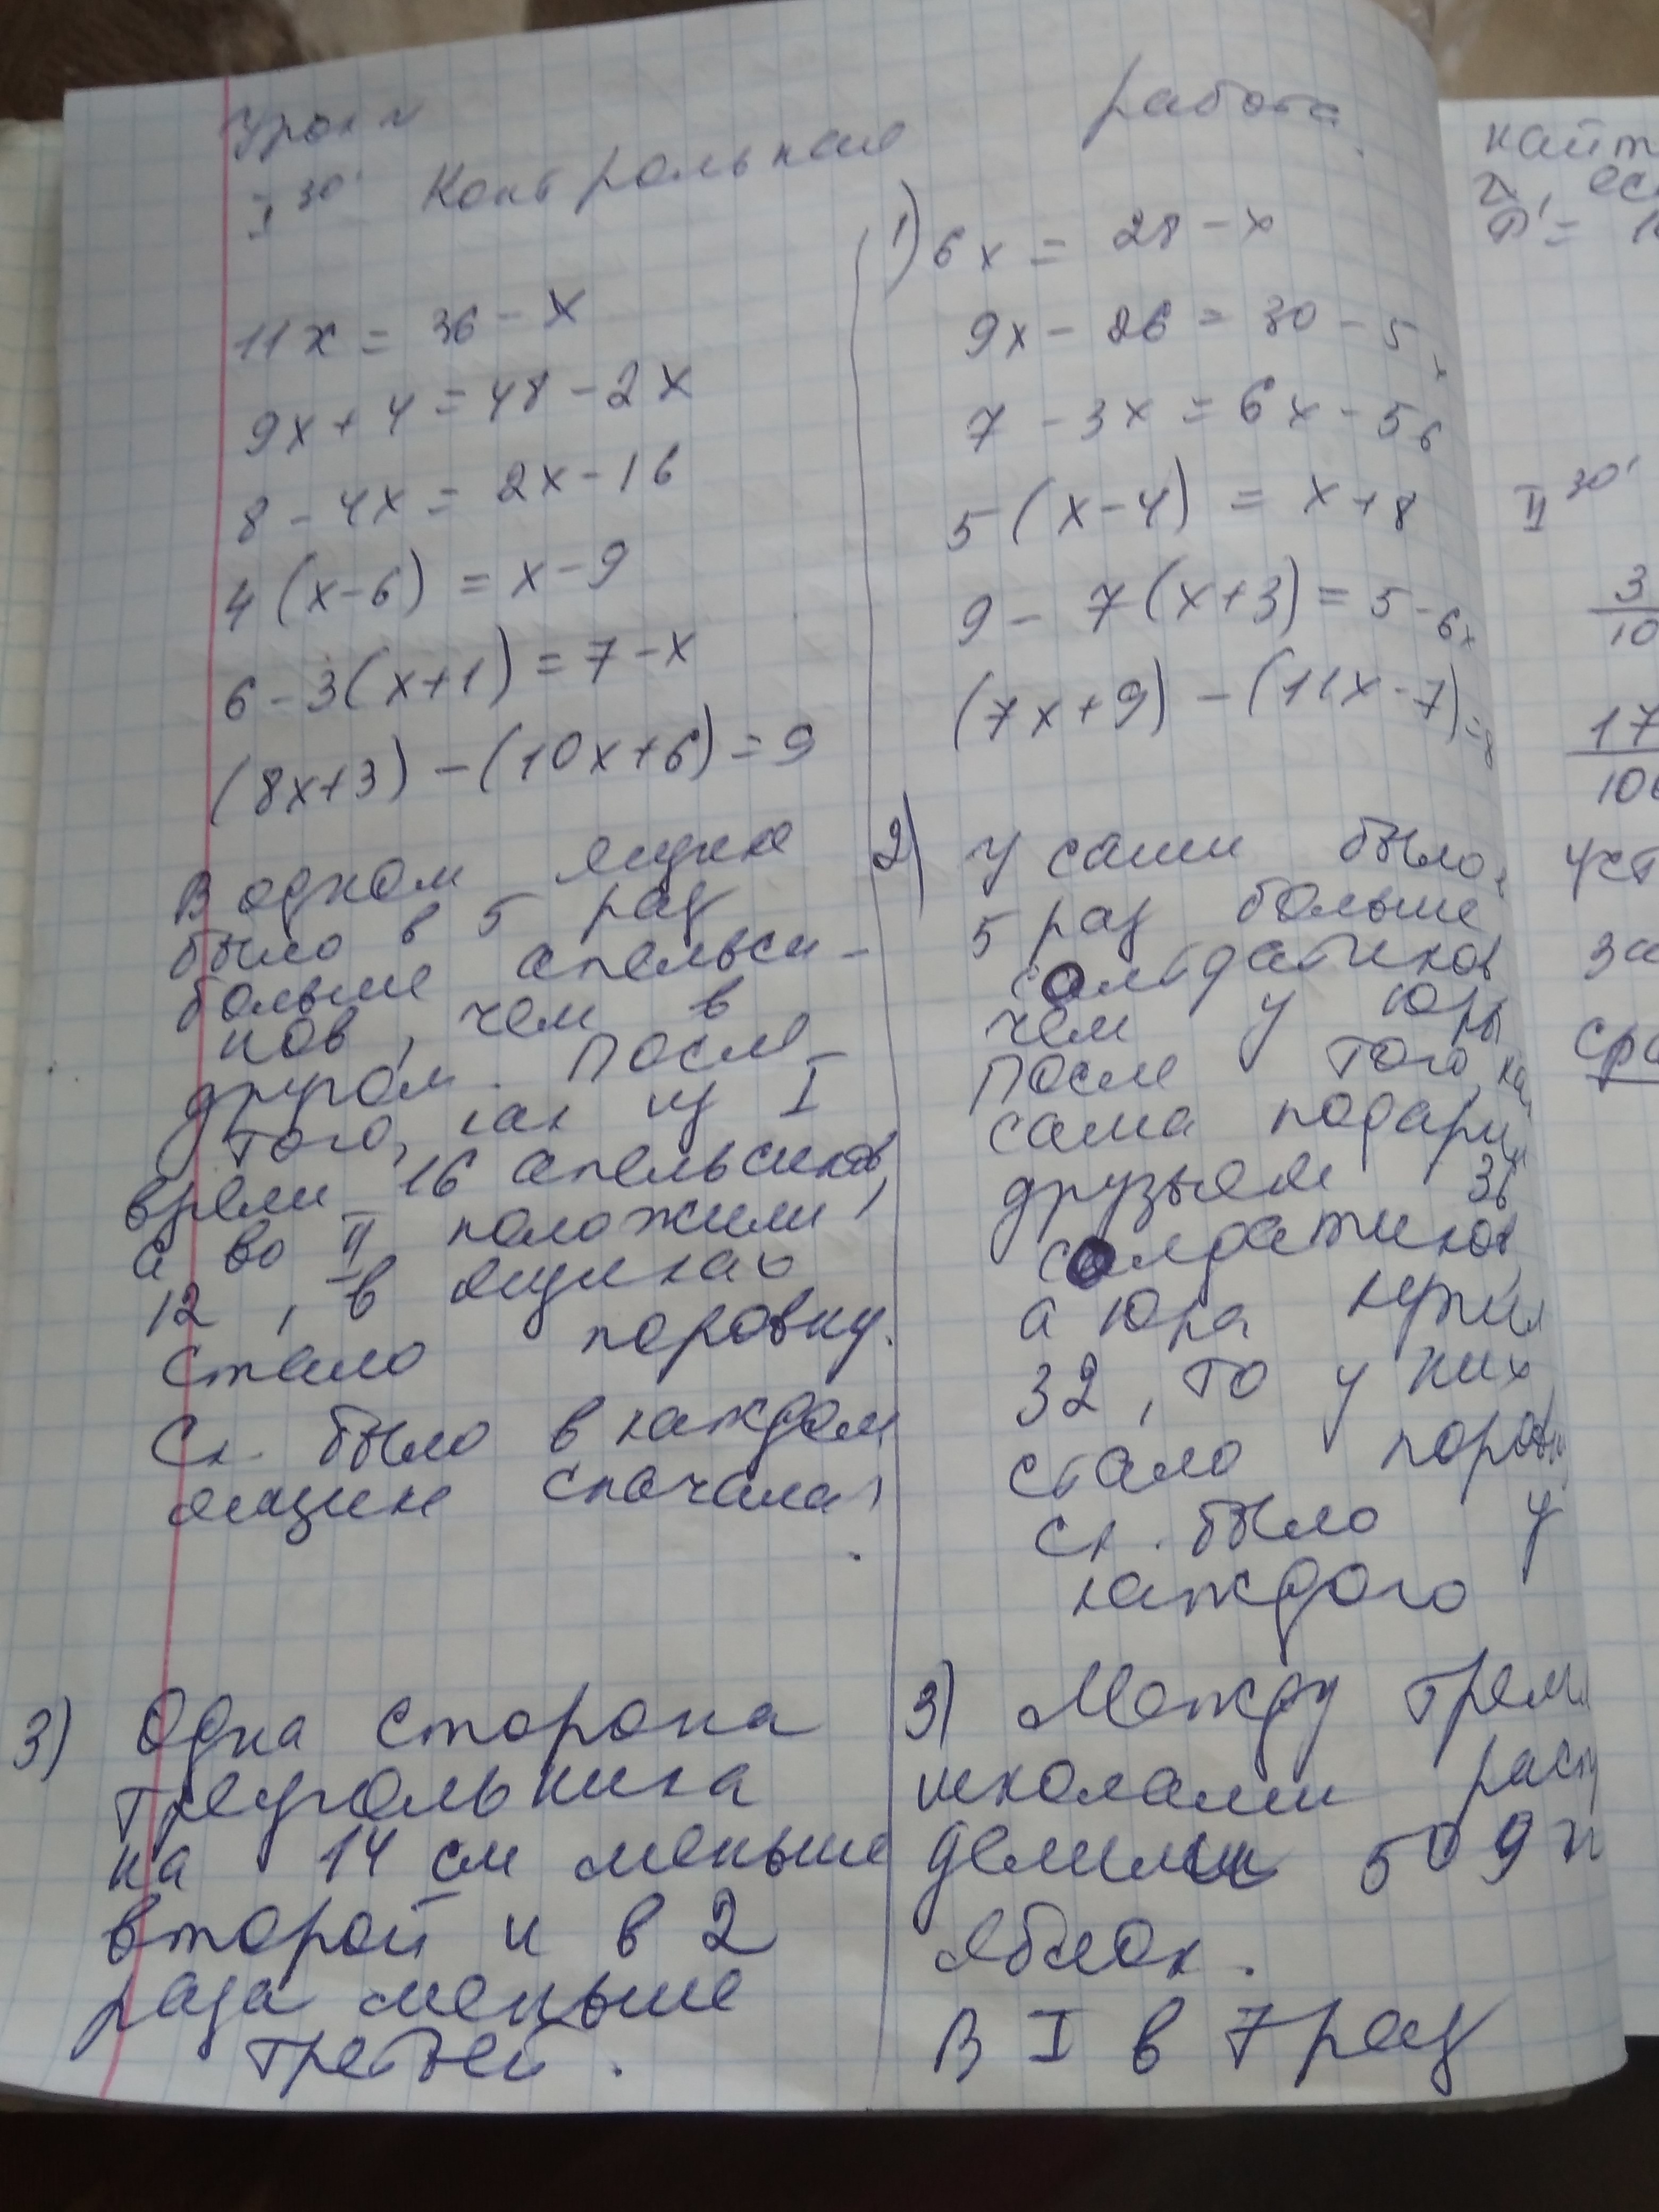 Уроки
I 30' Контрольная работа.
11x = 36 - x
9x + 4 = 48 - 2x
8 - 4x = 2x - 16
4(x-6) = x - 9
6 - 3(x+1) = 7 - x
(8x+3) - (10x+6) = 9
В одном ящике
было в 5 раз
больше апельси-
нов, чем в
другом. После
того, как из I
взяли 16 апельсинов,
а во II положили
12, в ящиках
стало поровну.
Ск. было в каждом
ящике сначала
3) Одна сторона
треугольника
на 14 см меньше
второй и в 2
раза меньше
третьей.
1) 6x = 28 - x
9x - 26 = 30 - 5x
7 - 3x = 6x - 56
5(x-4) = x+8
9 - 7(x+3) = 5 - 6x
(7x+9) - (11x-7) = 8
2) У саши было
5 раз больше
солдатиков
чем у Юры
После того, ка
саша подарил
друзьям 36
солдатиков
а Юра купил
32, то у них
стало поровн
Ск. было у
каждого
3) Между трем
школами расп
делили 509 к
яблок.
В I в 7 раз
найт
II 30'
3
10
17
уст
за
сра